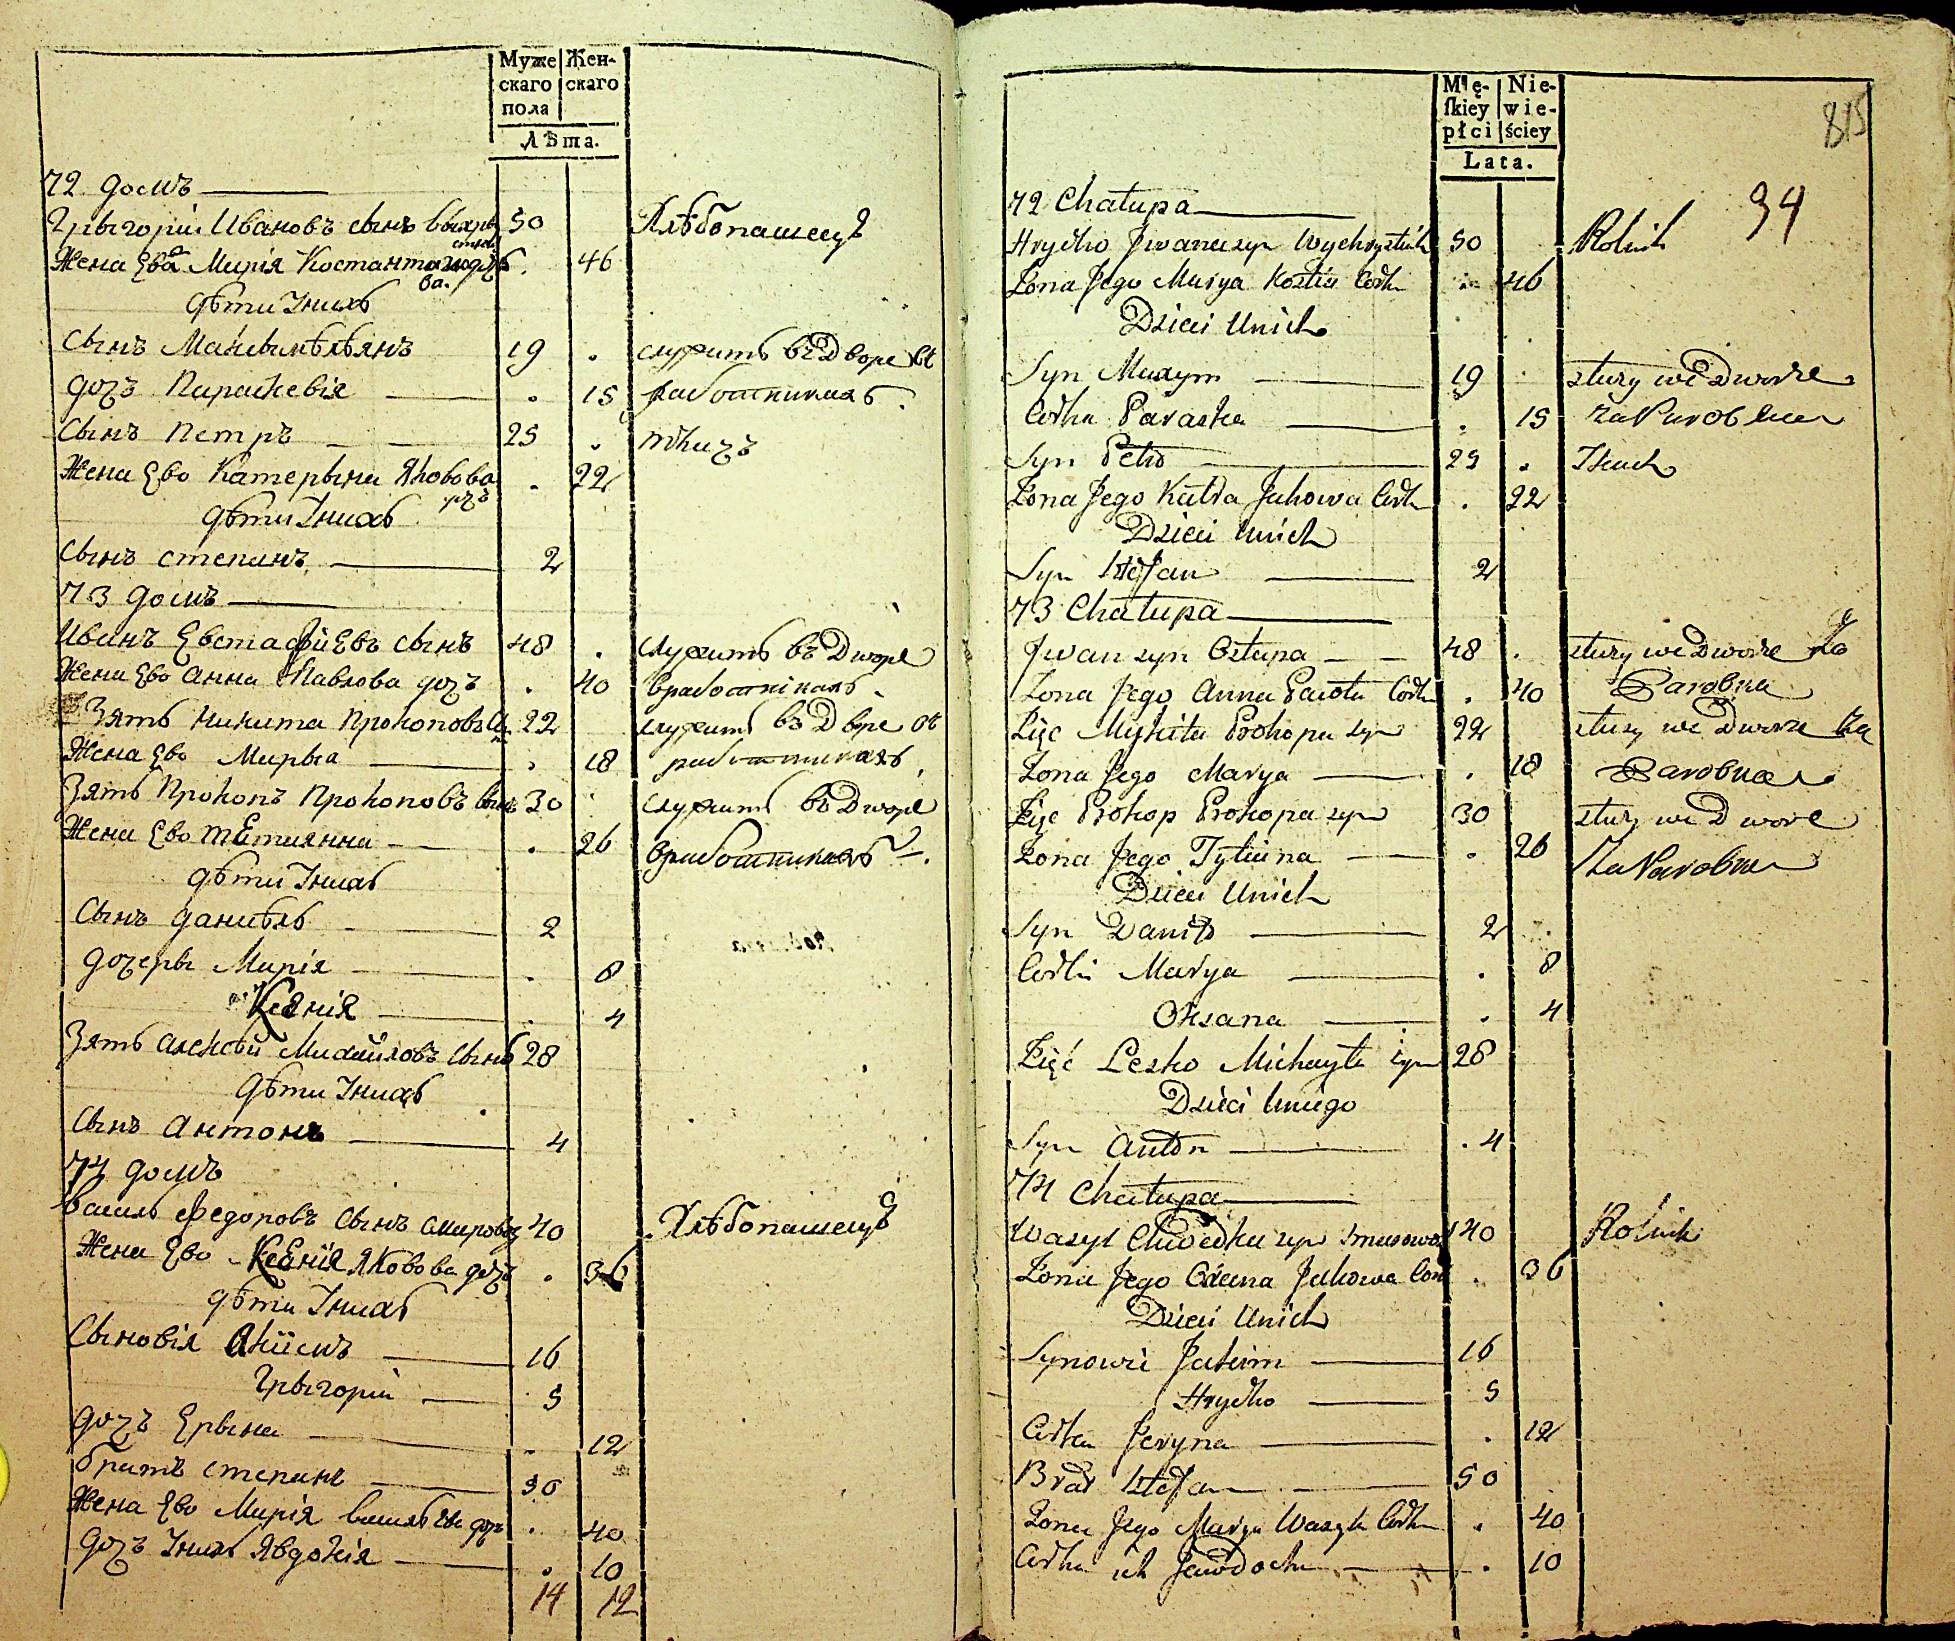 Муже Жен-
скаго скаго
пола
Лѣта.
72 домъ
Грыгорій Ивановъ сынъ 50 Хлѣбопашецъ
Жена Ево Марія Костантинова дочь . 46
дѣти Уныхъ
сынъ 19 . служитъ въ Дворе въ
дочъ Параскевія . 15 работникахъ.
сынъ Петръ 25 . ткачъ
Жена Ево Катерына Яковова дочъ . 22
дѣти Уныхъ
сынъ степанъ 2
73 домъ
Иванъ Евстафіевъ сынъ 48 . служитъ въ Дворе
Жена Ево Анна Павлова дочъ . 40 вработникахъ.
Зять Никита Прокоповъ сын 22 служитъ въ Дворе въ
Жена Ево Марыа . 18 работникахъ
Зять Прокопъ Прокоповъ сынъ 30 служитъ въ Дворе
Жена Ево тЕтианна . 26 вработникахъ.
дѣти Уныхъ
сынъ данiѣлъ 2
дочеры Марія . 8
Ксѣнія . 4
Зять алексѣй Михайловъ сынъ 28
дѣти Уныхъ
сынъ антонъ 4
74 домъ
василь федоровъ сынъ 40 Хлѣбопашецъ
Жена Ево Ксѣнія Яковова дочъ . 36
дѣти Уныхъ
сыновія Якiмъ 16
Грыгорій 5
дочъ Ерына . 12
братъ степанъ 50
Жена Ево Марія васильева дочъ . 40
дочъ Уныхъ Явдокія . 10
14 12
Mę- Nie-
skiey wie-
płci ściey
Lata.
815
94
72 Chałupa
Hryćko Jwana syn 50 Rolnik
Żona Jego Marya Kostia Córka .. 46
Dzieci Unich
Syn Maxym 19 . służy we Dworze
Córka Paraska . 15 za Parobka
Syn Petro 25 . Tkacz
Żona Jego Katra Jakowa Córka . 22
Dzieci Unich
Syn Stefan 2
73 Chałupa
Jwan syn Ostapa 48 . służy we Dworze Za
Żona Jego Anna Pawła Córka . 40 Parobka
Zięć Mykita Prokopa syn 22 służy we Dworze Za
Żona Jego Marya . 18 Parobka
Zięć Prokop Prokopa syn 30 służy we Dworze
Żona Jego Tytiana . 26 Za Parobka
Dzieci Unich
Syn Daniło 2
Córki Marya . 8
Oksana . 4
Zięć Lesko Michayła syn 28
Dzieci Uniego
Syn Anton . 4
74 Chałupa
Wasyl Chwedka syn 40 Rolnik
Żona Jego Jakowa Cor . 36
Dzieci Unich
Synowie Jakim 16
Hryćko 5
Córka Jeryna . 12
Brat Stefan 50
Żona Jego Marya Wasyla Córka . 40
Córka ich Jawdocha . 10